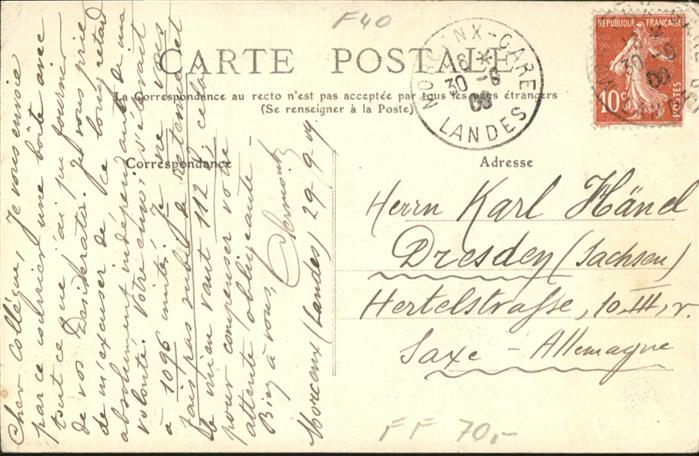 F40
CARTE POSTALE
La Correspondance au recto n'est pas acceptée par tous les pays étrangers
(Se renseigner à la Poste)
Correspondance
Adresse
Cher Collègue, Je vous envoie
par ce courrier une boîte avec
tout ce que j'ai pu fournir
de vos Desiderata. Je vous prie
de m'excuser de ce long retard
absolument indépendant de ma
volonté. Votre envoi s'élevant
à 1096 unités, je ne vous
fais pas subir de retenue et
le mien vaut 112, celui
pour compenser votre
attente obligeante -
Bien à vous,
Morceaux (Landes) 29/9/09
Herrn Karl Hänel
Dresden (Sachsen)
Hertelstrasse, 10 III, r.
Saxe - Allemagne
FF 70,-
X-GARE
30 -9
LANDES
REPUBLIQUE FRANÇAISE
10c
POSTES
30 -9